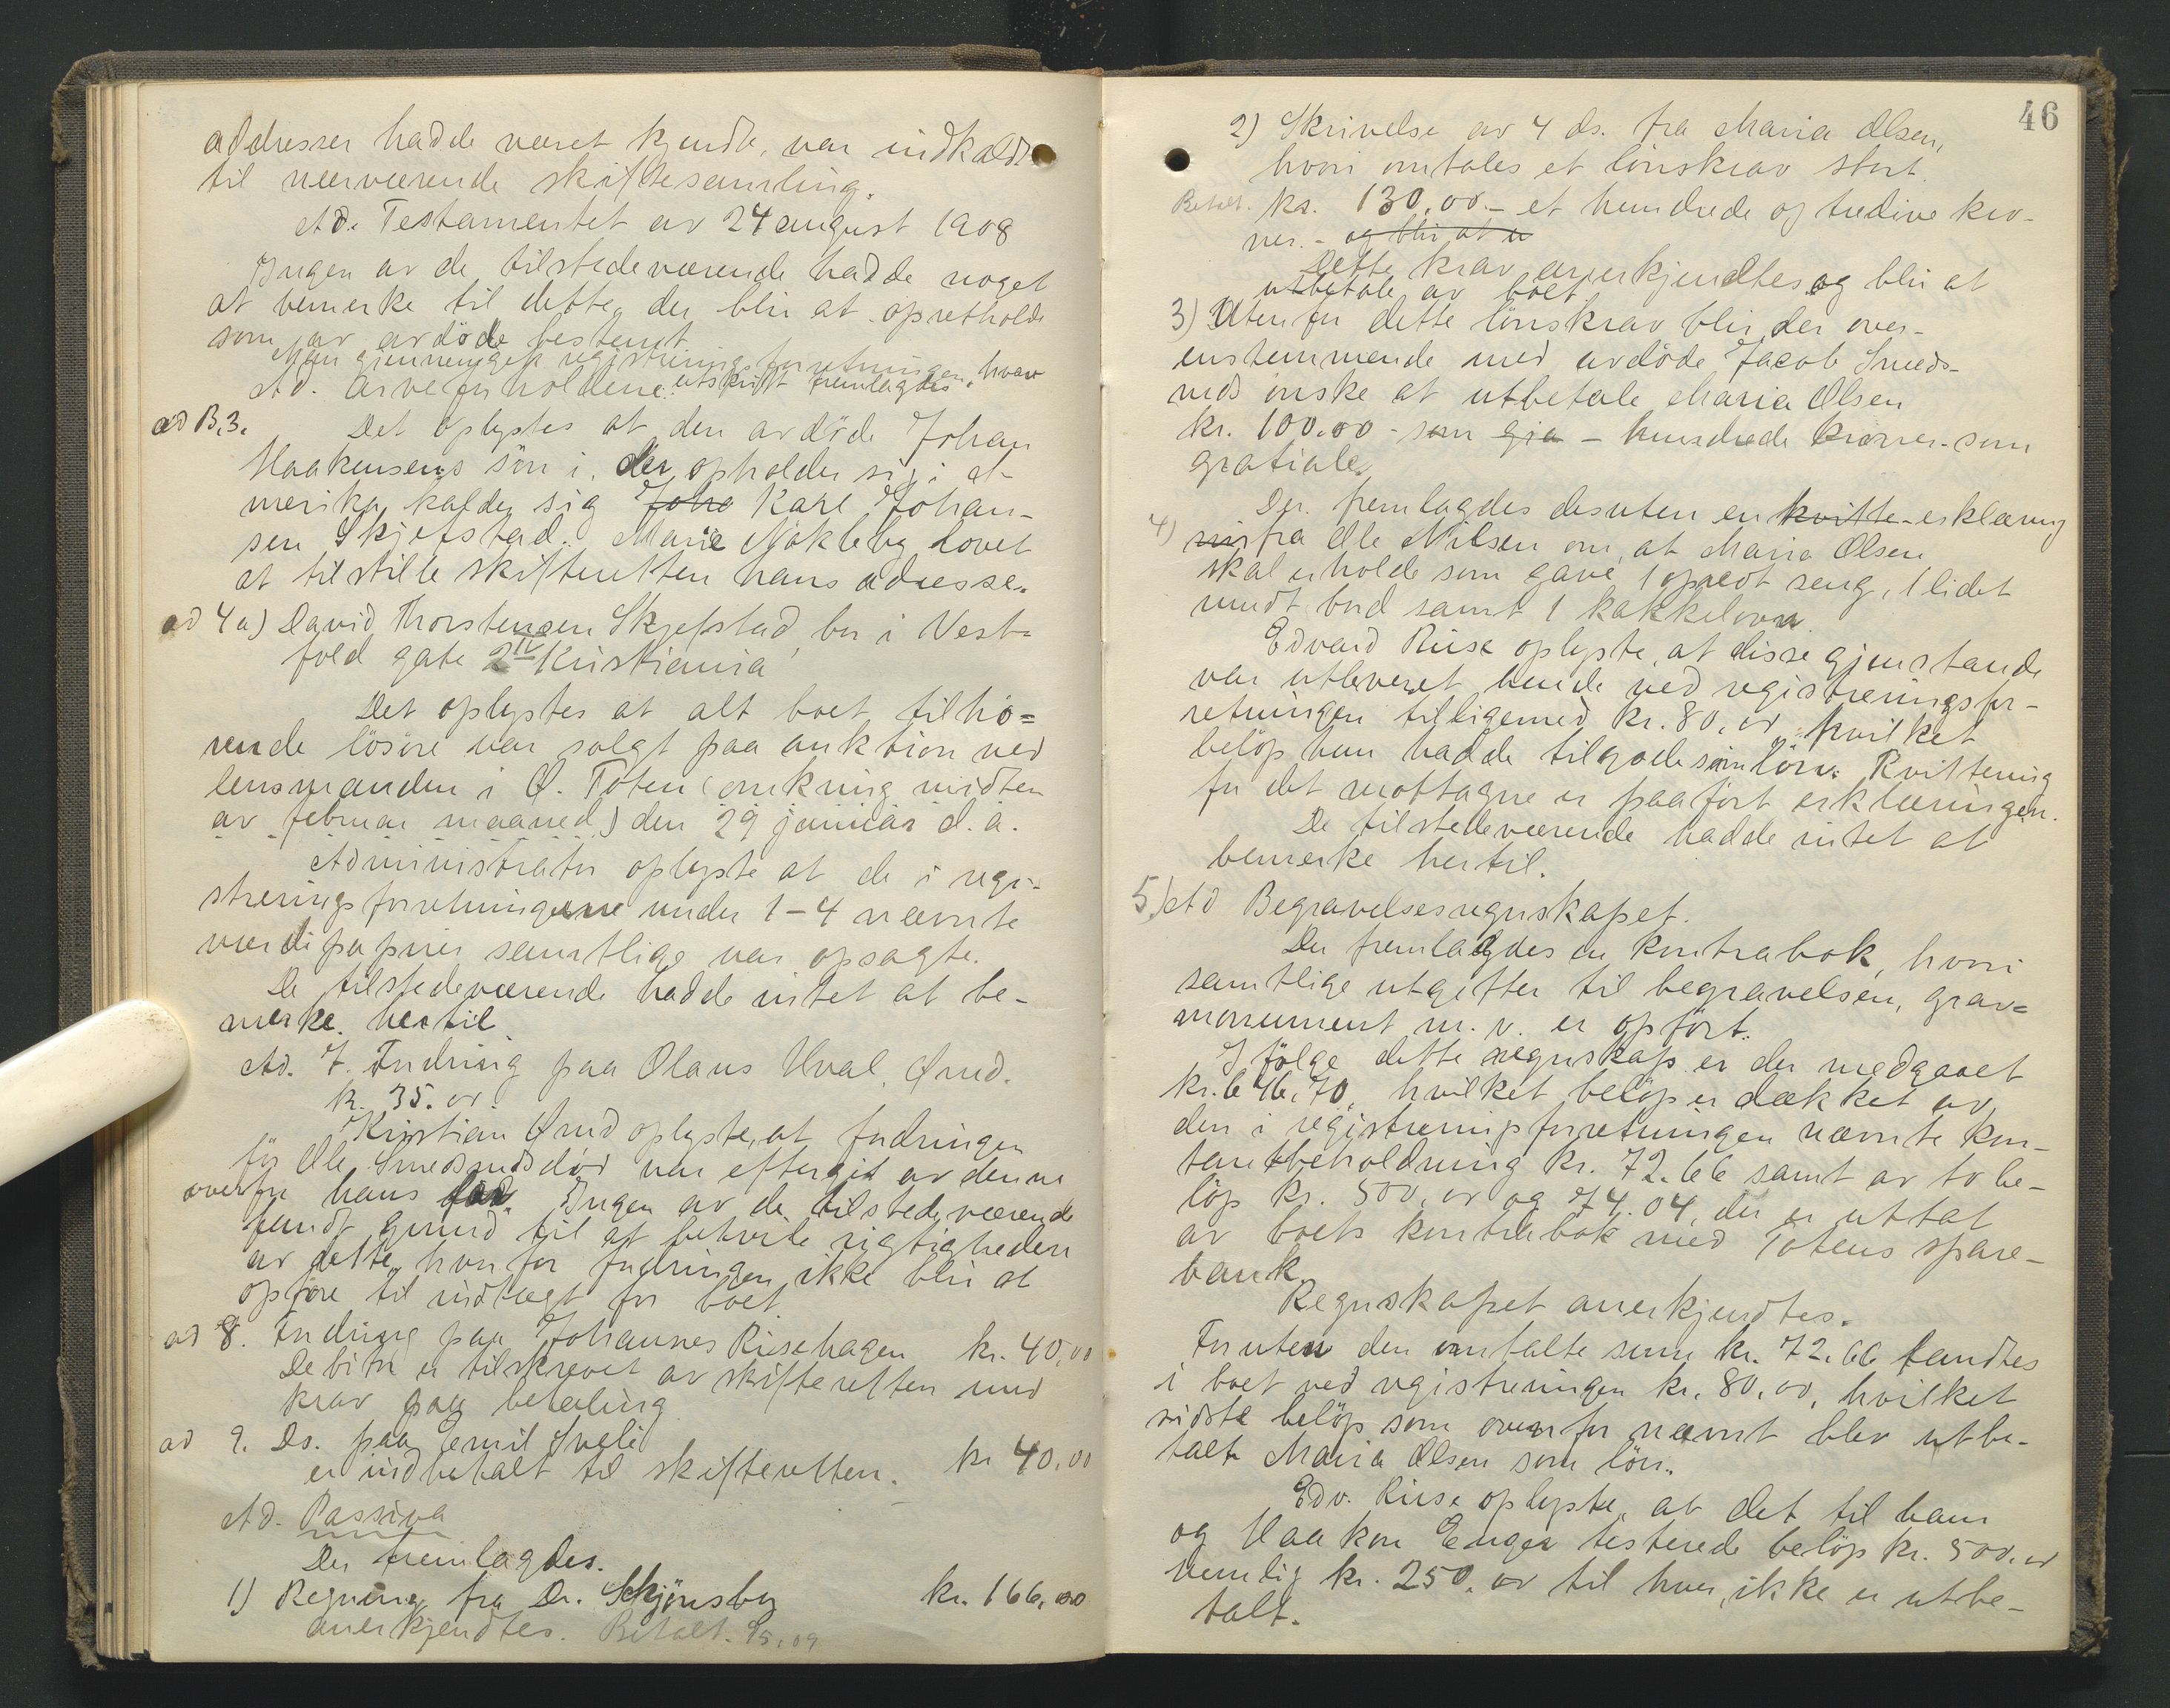 addresser hadde været kjendte, var indkaldt
til nærværende skiftesamling.
Ad. Testamentet av 24 august 1908
Ingen av de tilstedeværende hadde noget
at bemerke til dette, der blir at opretholde
som av avdöde bestemt.
Man gjennemgik registreringsforretningen, hvorav
Ad. Arveforholdene. utskrift fremlagdes.
ad B.3. Det oplystes at den avdöde Johan
Haakensens sön i, der opholder sig i A-
merika kalder sig Joha Karl Johan-
sen Skjefstad. Marie Nökleby lovet
at tilstille skifteretten hans adresse.
ad 4a) David Thorstensen Skjefstad, bor i Vest-
fold gate 2 IV Kristiania
Det oplystes at alt boet tilhö-
rende lösöre var solgt paa auktion ved
lensmanden i Ø. Toten (omkring midten
av februar maaned) den 29 januar d.a.
Administrator oplyste at de i regi-
streringsforretningene under 1-4 nævnte
værdipapirer samtlige var opsagte.
De tilstedeværende hadde intet at be-
merke hertil.
Ad. 7. Fordring paa Olaus Hval, Ørud.
kr. 35.00.
Kristian Ørud oplyste, at fordringen
för Ole Smedsruds död var eftergit av denne
overfor hans far. Ingen av de tilstedeværende
fandt grund til at betvile rigtigheden
av dette, hvorfor fordringen ikke blir at
opföre til indtægt for boet.
ad 8. Fordring paa Johannes Risehagen kr. 40,00
Debitor er tilskrevet av skifteretten med
krav paa betaling
ad 9. Do. paa Emil Sveli kr 40,00
er indbetalt til skifteretten.
Ad. Passiva
Der fremlagdes.
1) Regning fra Dr. Skjönsby kr. 166,00
anerkjendtes. Betalt. 9/5.09
46
2) Skrivelse av 4 ds. fra Maria Olsen,
hvori omtales et lönskrav stort
Betalt. kr. 130,00 - et hundrede og tredive kro-
ner. - og blir at u
Dette krav anerkjendtes og blir at
utbetale av boet.
3) Utenfor dette lönskrav blir der over-
ensstemmende med avdöde Jacob Smeds-
ruds önske at utbetale Maria Olsen
kr. 100.00 - som gra - hundrede kroner - som
gratiale.
Der fremlagdes desuten en kvitte- erklæring
4) fra Ole Nilsen om, at Maria Olsen
skal erholde som gave 1 opredt seng, 1 lidet
rundt bord samt 1 kakkelovn.
Edvard Riise oplyste, at disse gjenstande
var utleveret hende ved registreringsfor-
retningen tilligemed kr. 80,00, hvilket
belöp hun hadde tilgode som lön. Kvittering
for det mottagne er paafört erklæringen.
De tilstedeværende hadde intet at
bemerke hertil.
5.) Ad Begravelsesregnskapet.
Der fremlagdes en kontrabok, hvori
samtlige utgifter til begravelsen, grav-
monument m.v. er opfört.
Ifölge dette regnskap er der medgaaet
kr. 646,70, hvilket belöp er dækket av
den i registreringsforretningen nævnte kon-
tantbeholdning kr. 72.66 samt av to be-
löp kr. 500,00 og 74.04, der er uttat
av boets kontrabok med Totens spare-
bank.
Regnskapet anerkjendtes.
Foruten den omtalte sum kr. 72.66 fandtes
i boet ved registreringen kr. 80,00, hvilket
sidste belöp som ovenfor nævnt blev utbe-
talt Maria Olsen som lön.
Edv. Riise oplyste, at det til ham
og Haakon Enger testerede belöp kr. 500,00
nemlig kr. 250.00 til hver, ikke er utbe-
talt.